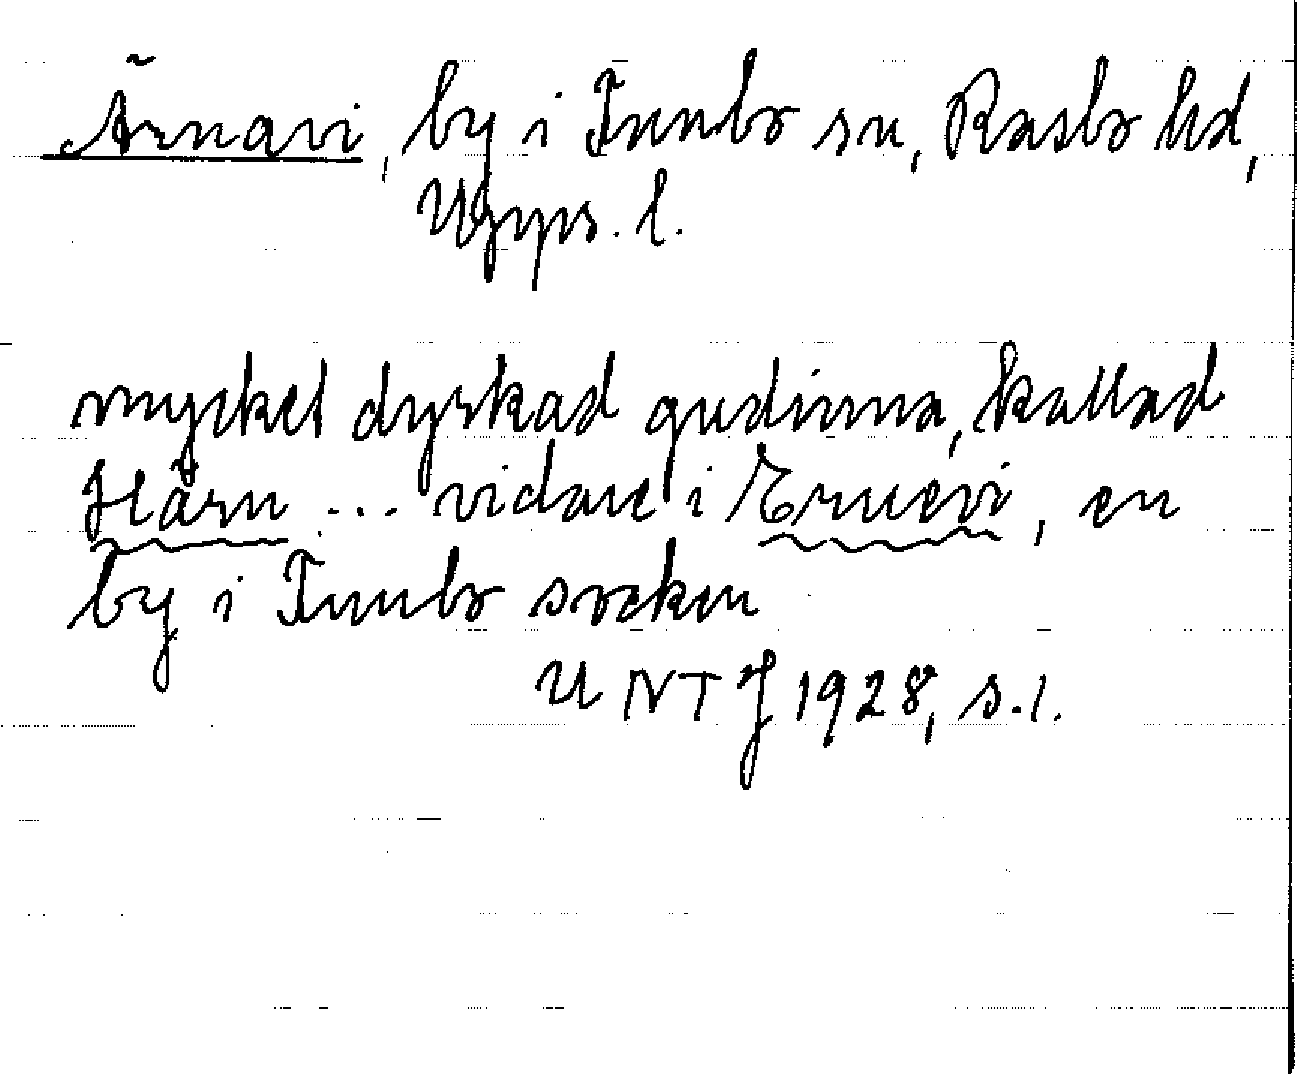 Ärnavi, by i Funbo sn, Rasbo hd,
Upps. l.
mycket dyrkad gudinna, kallad
Härn ... vidare i Ernevi, en
by i Funbo socken
UNT J 1928, s. 1.